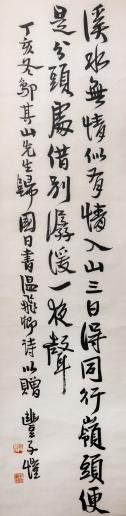 溪水無情似有情入山三日得同行嶺頭便
是分頭處惜別潺湲一夜聲
丁亥冬鄔其山先生歸國日書溫飛卿詩以贈 豐子愷